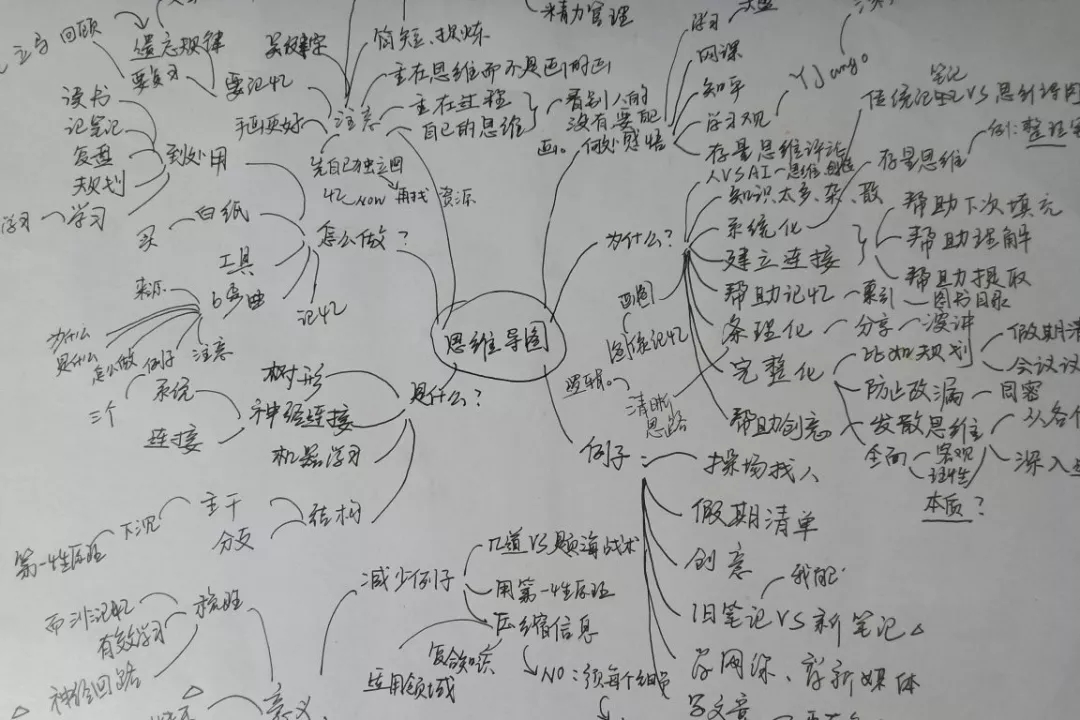 精力管理
回顾
遗忘规律
要复习
要记忆
关键字
简短、提炼
主在思维而不是画的画
注意
主在过程
自己的思维
看别人的
没有要配
画。
手画更好
先自己独立画
记忆now 再找 资源
读书
记笔记
复盘
规划
学习
学习
到处用
白纸
买
工具
6要曲
记忆
怎么做?
来源
为什么
是什么
怎么做
例子
注意
思维导图
何处感悟
学习
网课
知乎
学习观
YJango
存量思维评论
人VSAI-思维
传统记忆VS思维导图
笔记
为什么?
知识太多、杂、散
系统化
存量思维
例:整理
建立连接
帮助下次填充
帮助理解
帮助提取
帮助记忆
索引
图书目录
画图
图像记忆
条理化
分享
演讲
逻辑。
清晰
思路
完整化
比如规划
假期清
会议议
防止改漏
周密
发散思维
从各
深入
全面
客观
理性
本质?
帮助创意
是什么?
树形
神经连接
系统
三个
连接
机器学习
结构
主干
分支
下沉
第一性原理
例子
操场找人
假期清单
创意
我的
旧笔记VS新笔记
学网课、学新媒体
写文章
减少例子
几道VS题海战术
用第一性原理
压缩信息
复合知识
运用领域
NO:须每个细
梳理
有效学习
神经回路
意义